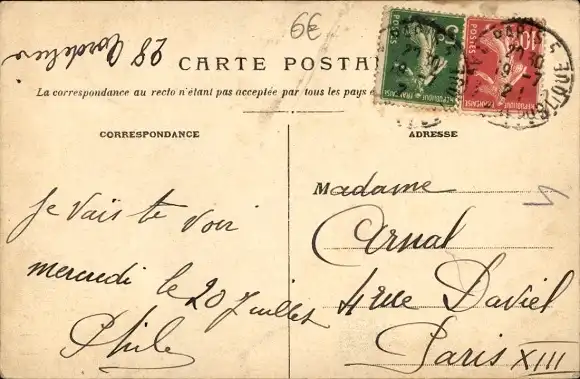 6€
28 Cordelier
CARTE POSTA
La correspondance au recto n'étant pas acceptée par tous les pays
CORRESPONDANCE
ADRESSE
Je vais te voir
mercredi le 20 Juillet
Phile
Madame
Arnal
4 rue Daviel
Paris XIII
POSTES
REPUBLIQUE FRANÇAISE
10
POSTES
REPUBLIQUE FRANÇAISE
PARIS